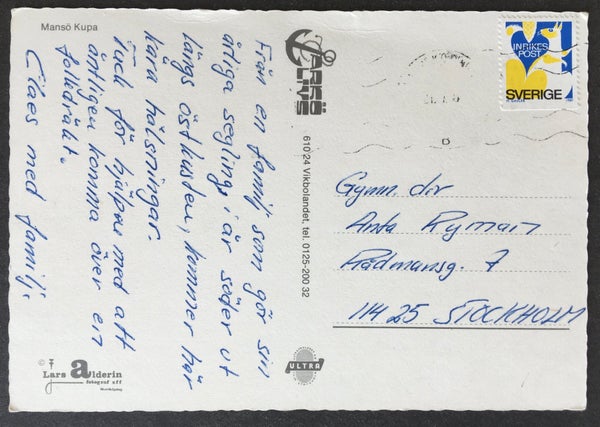 Mansö Kupa
Från en familj som gör sin
årliga segling i år söder ut
längs östkusten, kommer här
kära hälsningar.
Tack för hjälpen med att
äntligen komma över en
folkdräkt.
Claes med familj.
ARKÖ
LIVS
610 24 Vikbolandet, tel. 0125-200 32
INRIKES
POST
SVERIGE
Gymn. dir
Asta Ryman
Rådmansg. 7
114 25 STOCKHOLM
© Lars Alderin
fotograf sff
Norrköping
ULTRA